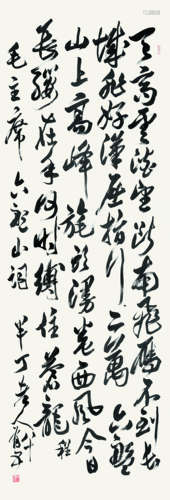 天高雲淡望斷南飛雁不到長
城非好漢屈指行二萬六盤
山上高峰旄頭漫卷西風今日
長纓在手何時縛住蒼龍 程
毛主席六盤山詞 半丁老人